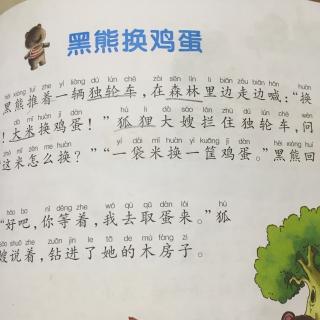 黑熊换鸡蛋
hēi xióng tuī zhe yí liàng dú lún chē zài sēn lín li biān zǒu biān hǎn huàn
黑熊推着一辆独轮车，在森林里边走边喊：“换
dà mǐ huàn jī dàn hú li dà sǎo lán zhù dú lún chē wèn
！大米换鸡蛋！”狐狸大嫂拦住独轮车，问
zhè mǐ zěn me huàn yí dài mǐ huàn yì kuāng jī dàn hēi xióng huí
“这米怎么换？”“一袋米换一筐鸡蛋。”黑熊回
hǎo ba nǐ děng zhe wǒ qù qǔ dàn lái hú
“好吧，你等着，我去取蛋来。”狐
sǎo shuō zhe zuān jìn le tā de mù fáng zi
嫂说着，钻进了她的木房子。